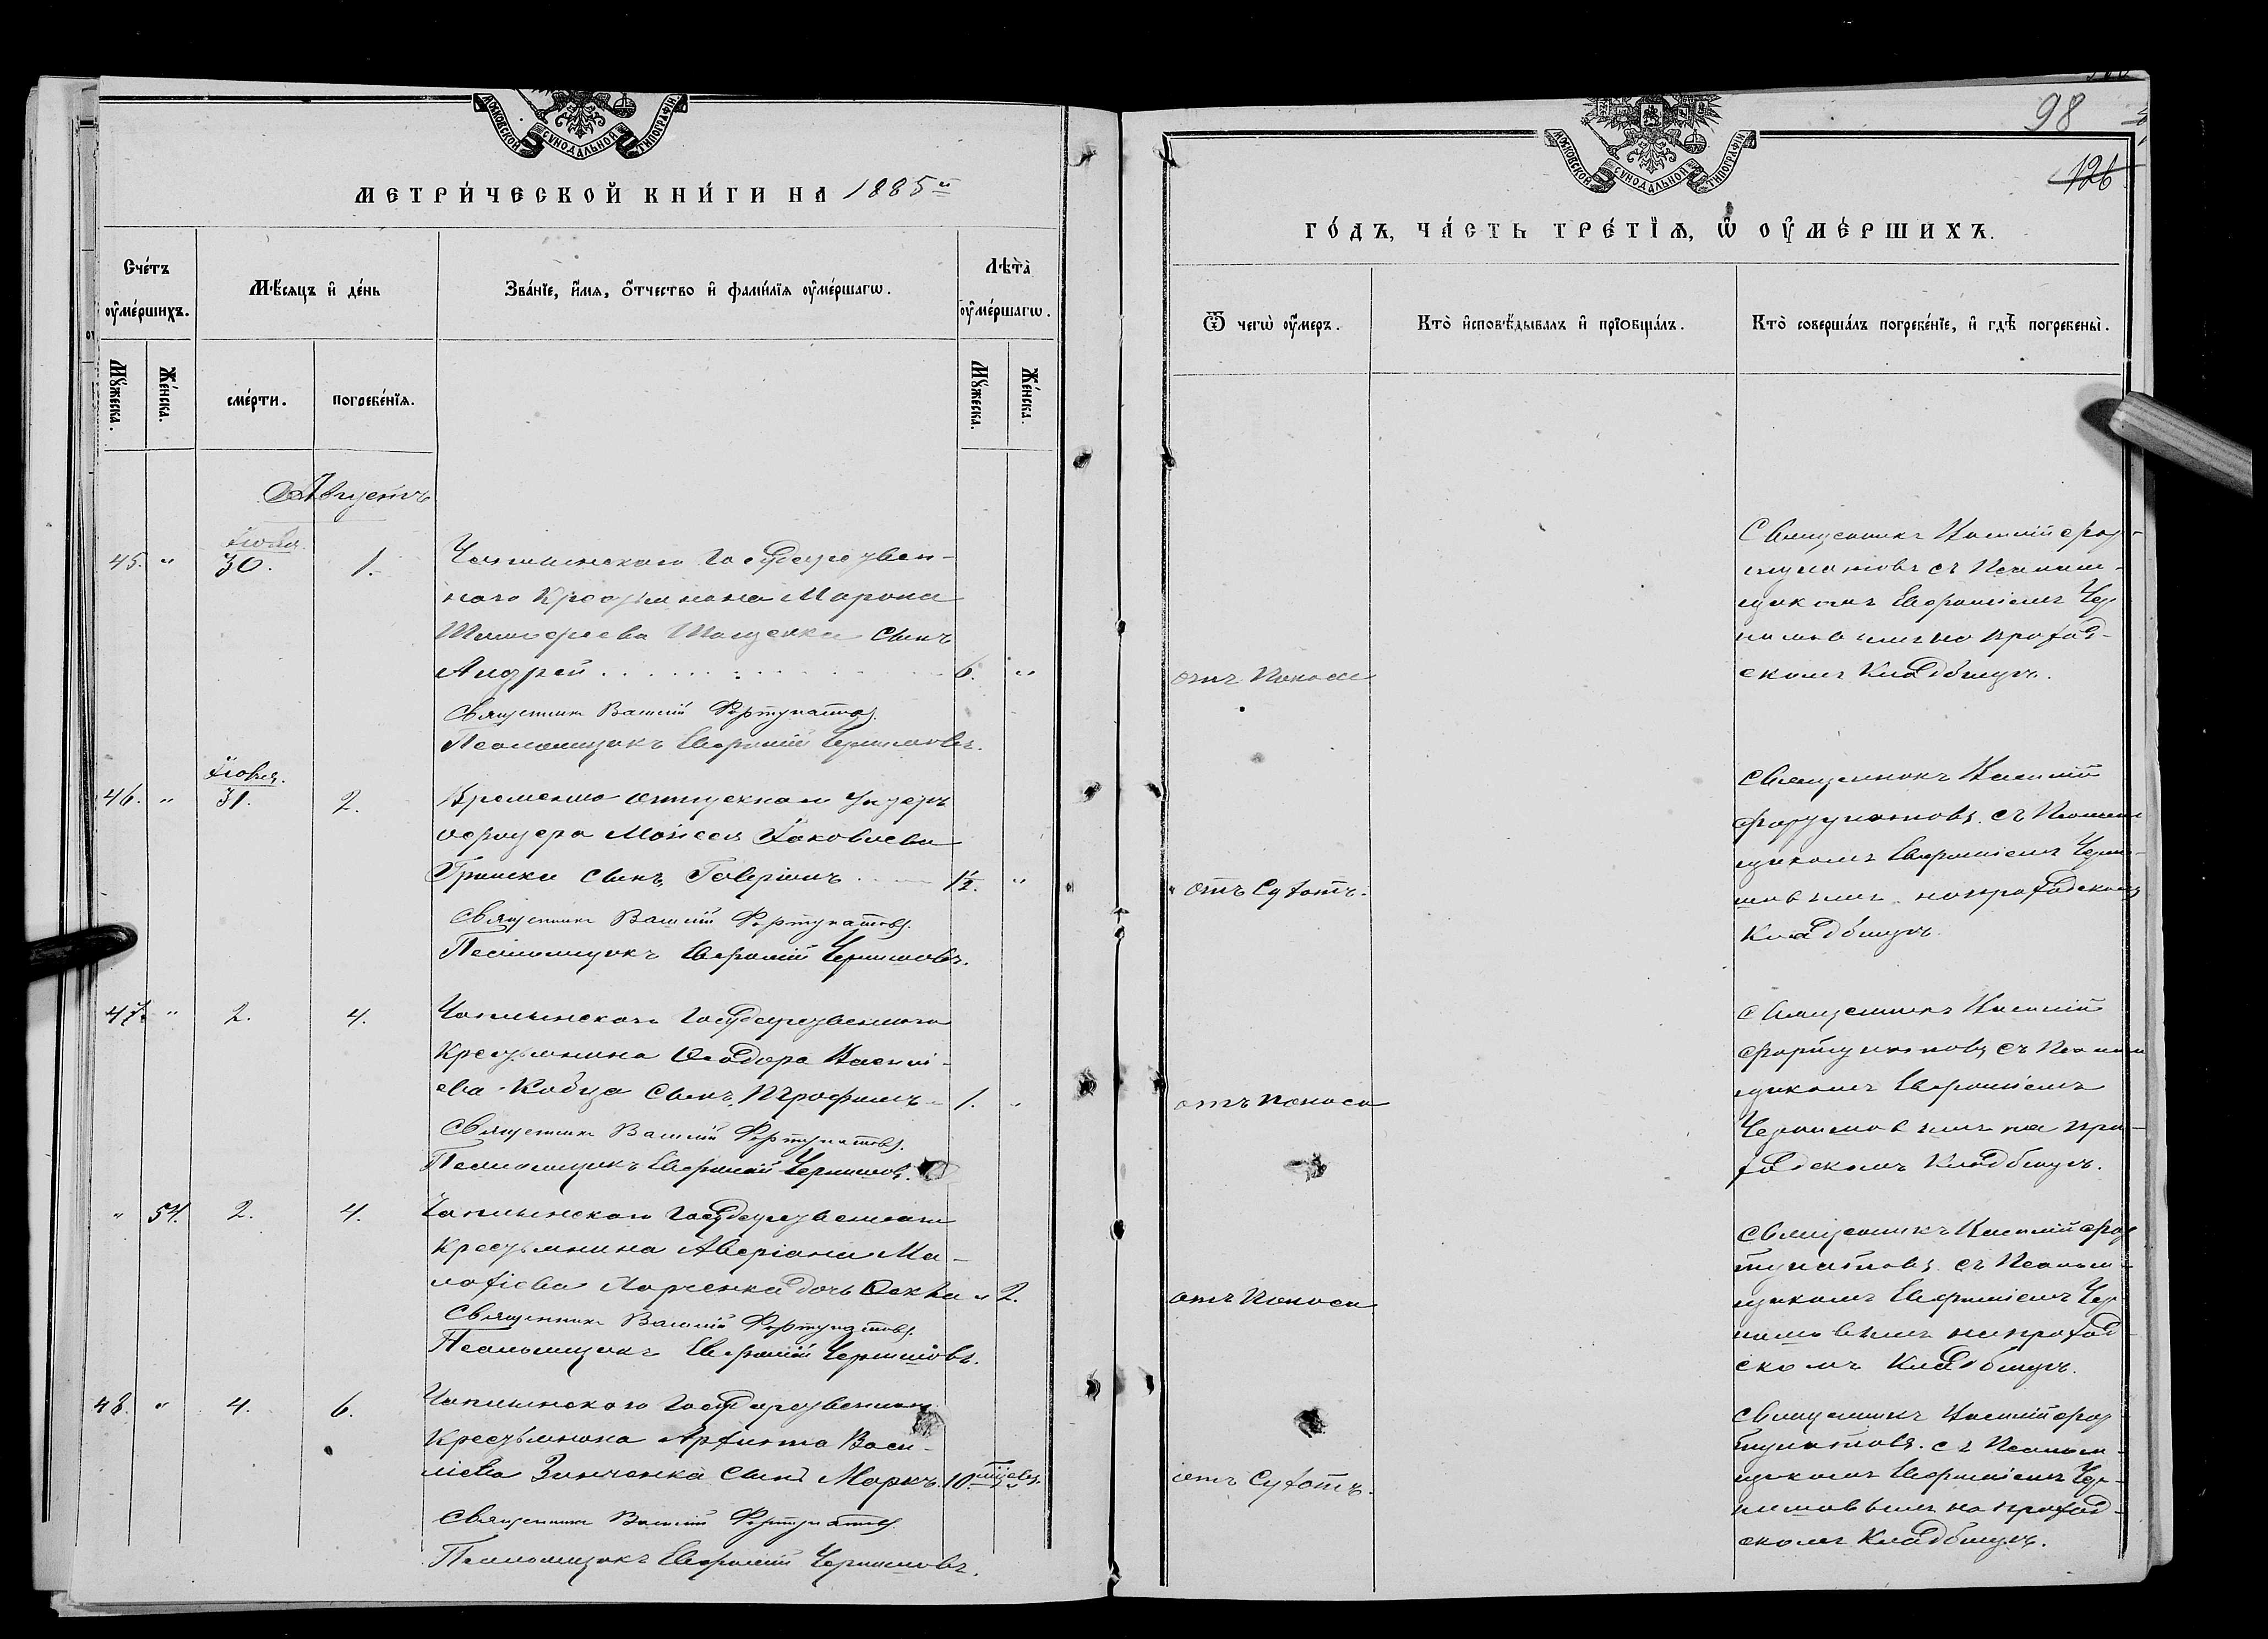 МОСКОВСКОЙ СѴНОДАЛЬНОЙ ТИПОГРАФІИ
МЕТРИ́ЧЕСКОЙ КНИ́ГИ НА 1885й
Счéтъ оумéршихъ.
Мѣ́сяцъ и дéнь
Звáніе, и́мя, óтчество и фамѝлія оумéршагѡ.
Лѣ̀та оумéршагѡ.
Мꙋ́жеска.
Жéнска.
смéрти.
погребéнїя.
Мꙋ́жеска.
Жéнска.
Августъ
45. " Іюля 30. 1.
Чаплынского Государствен-
ного Крестьянина Марона
Тимофеева сынъ
Андрей . . . . . . . . . . 6. "
Священникъ Василій Фортунатовъ.
Псаломщикъ Евфимій Чернишовъ.
46. " Іюля. 31. 2.
Временно отпускного Унтеръ
офицера Моисея Яковлева
Гриски сынъ, Гаверіилъ 1½. "
Священникъ Василій Фортунатовъ.
Псаломщикъ Евфимій Чернишовъ.
47. " 2. 4.
Чаплынского Государственного
Крестьянина Феодора Василі-
ева Кобца сынъ, Трофимъ 1. "
Священникъ Василій Фортунатовъ.
Псаломщикъ Евфимій Чернишовъ.
" 54. 2. 4.
Чаплынского Государственного
Крестьянина Аверіана Ма-
лофіева Харченка дочь Фекла " 2.
Священникъ Василій Фортунатовъ.
Псаломщикъ Евфимій Чернишовъ.
48. " 4. 6.
Чаплынского Государственного
Крестьянина Архипа Васи-
ліева Зинченка сынъ Маркъ. 10. "
Священникъ Василій Фортунатовъ
Псаломщикъ Евфимій Чернишовъ.
98
126
МОСКОВСКОЙ СѴНОДАЛЬНОЙ ТИПОГРАФІИ
ГО́ДЪ, ЧА́СТЬ ТРЕ́ТІѦ, Ѡ ОУМЕ́РШИХЪ.
Ѿ чегѡ̀ оу́меръ.
Ктò исповѣ́дывалъ и прїобщáлъ.
Ктò совершáлъ погребéнїе, и гдѣ̀ погребены̀.
отъ Поноса
Священникъ Василій Фор-
тунатовъ съ Псалом-
щикомъ Евфиміемъ Чер-
нишовымъ на приход-
скомъ Кладбищѣ.
" отъ Сухотъ.
Священникъ Василій
Фортунатовъ. съ Псалом
щикомъ Евфиміемъ Черни-
шовымъ на приходскомъ
Кладбищѣ.
отъ Поноса
Священникъ Василій
Фортунатовъ съ Псалом
щикомъ Евфиміемъ
Чернишовымъ на при-
ходскомъ Кладбищѣ.
отъ Поноса
Священникъ Василій Фор
тунатовъ. съ Псалом-
щикомъ Евфиміемъ Чер-
нишовымъ на приход-
скомъ Кладбищѣ.
отъ Сухотъ.
Священникъ Василій Фор-
тунатовъ. съ Псалом-
щикомъ Евфиміемъ Чер-
нишовымъ на приход-
скомъ Кладбищѣ.